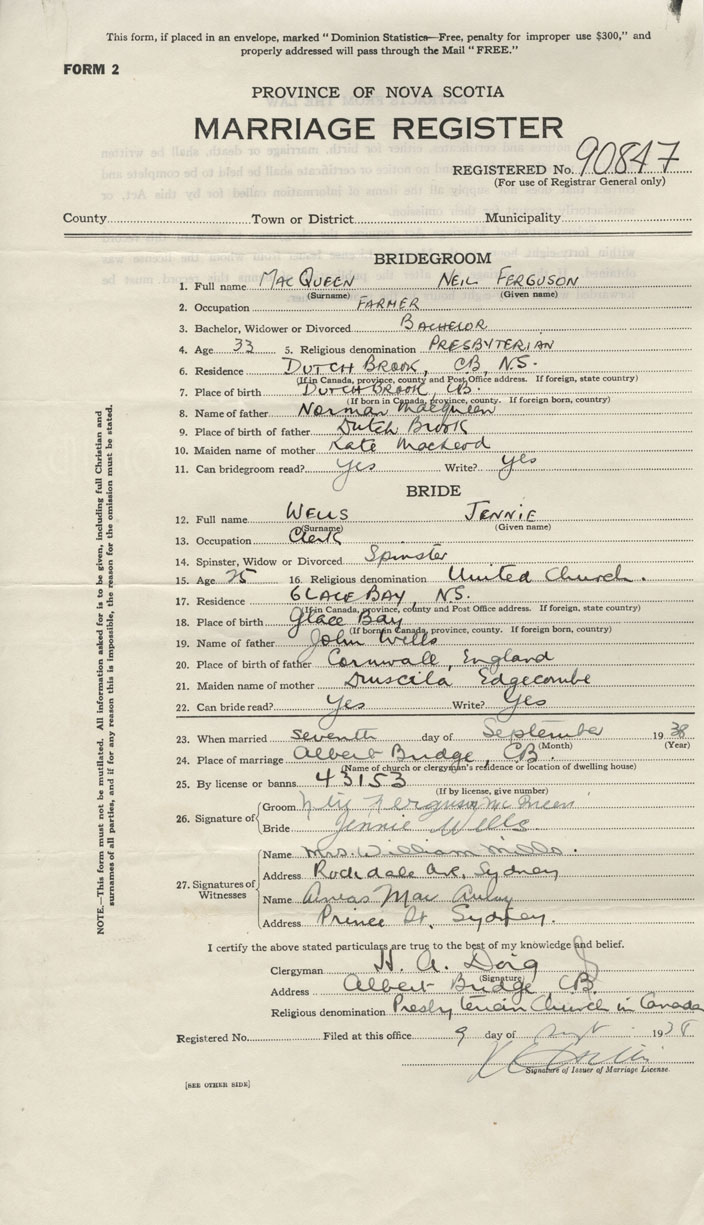 This form, if placed in an envelope, marked "Dominion Statistics—Free, penalty for improper use $300," and
properly addressed will pass through the Mail "FREE."
FORM 2
PROVINCE OF NOVA SCOTIA
MARRIAGE REGISTER
REGISTERED No. 90847
(For use of Registrar General only)
County Town or District Municipality
BRIDEGROOM
1. Full name MacQueen Neil Ferguson
(Surname) (Given name)
2. Occupation Farmer
3. Bachelor, Widower or Divorced Bachelor
4. Age 33 5. Religious denomination Presbyterian
6. Residence Dutch Brook, CB, N.S.
(If in Canada, province, county and Post Office address. If foreign, state country)
7. Place of birth Dutch Brook, CB.
(If born in Canada, province, county. If foreign born, country)
8. Name of father Norman MacQueen
9. Place of birth of father Dutch Brook
10. Maiden name of mother Kate MacLeod
11. Can bridegroom read? Yes Write? yes
BRIDE
12. Full name Wells Jennie
(Surname) (Given name)
13. Occupation Clerk
14. Spinster, Widow or Divorced Spinster
15. Age 25 16. Religious denomination United Church.
17. Residence Glace Bay, N.S.
(If in Canada, province, county and Post Office address. If foreign, state country)
18. Place of birth Glace Bay
(If born in Canada, province, county. If foreign born, country)
19. Name of father John Wells
20. Place of birth of father Cornwall, England
21. Maiden name of mother Druscila Edgecombe
22. Can bride read? Yes Write? Yes
23. When married seventh day of September 1938
(Month) (Year)
24. Place of marriage Albert Bridge, CB.
(Name of church or clergyman's residence or location of dwelling house)
25. By license or banns 43153
(If by license, give number)
26. Signature of Groom Neil Ferguson McQueen
Bride Jennie Wells
27. Signatures of Witnesses
Name Mrs. William Mills.
Address Rockdale Ave, Sydney
Name Mac Aulay
Address Prince St, Sydney.
I certify the above stated particulars are true to the best of my knowledge and belief.
Clergyman H. A. Doig
(Signature)
Address Albert Bridge CB.
Religious denomination Presbyterian Church in Canada
Registered No. Filed at this office 9 day of 1938
Signature of Issuer of Marriage License.
[SEE OTHER SIDE]
NOTE.—This form must not be mutilated. All information asked for is to be given, including full Christian and
surnames of all parties, and if for any reason this is impossible, the reason for the omission must be stated.